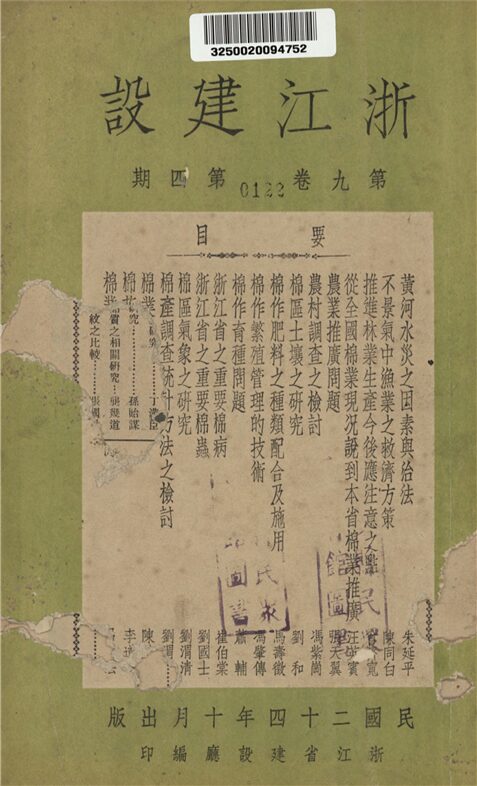 3250020094752
浙江建設
第九卷 第四期
0122
要目
黃河水災之因素與治法 朱延平
不景氣中漁業之救濟方策 陳同白
推進林業生產今後應注意之點 寬
從全國棉業現況說到本省棉業推廣 汪 賓
農業推廣問題 張天翼
農村調查之檢討 馮紫崗
棉區土壤之研究 劉和
棉作肥料之種類配合及施用 馬壽徵
棉作繁殖管理的技術 馮肇傳
棉作育種問題 蕭輔
浙江省之重要棉病 崔伯棠
浙江省之重要棉蟲 劉國士
棉區氣象之研究 劉渭清
棉產調查統計方法之檢討 劉渭
棉業 陳
棉 李
研究……孫始謀
質之相關研究
紋之比較
民國二十四年十月出版
浙江省建設廳編印